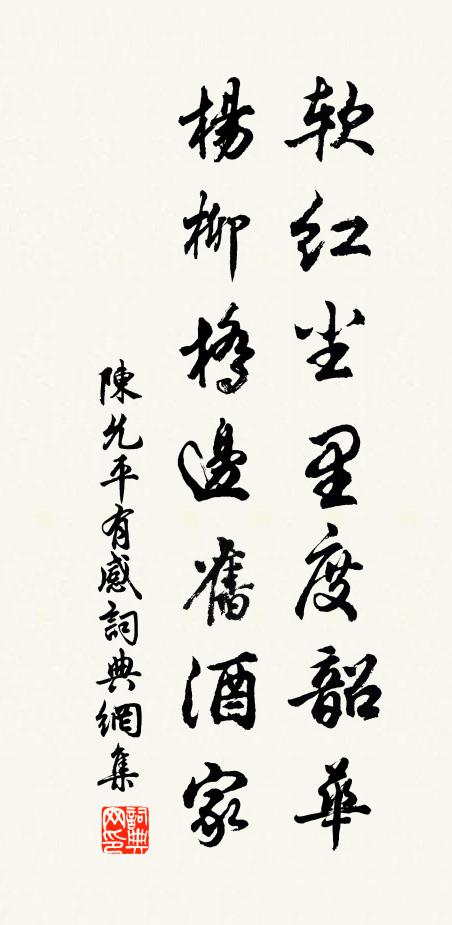 软红尘里度韶華
楊柳橋邊舊酒家
陳允平有感詞典網集
詞典网印